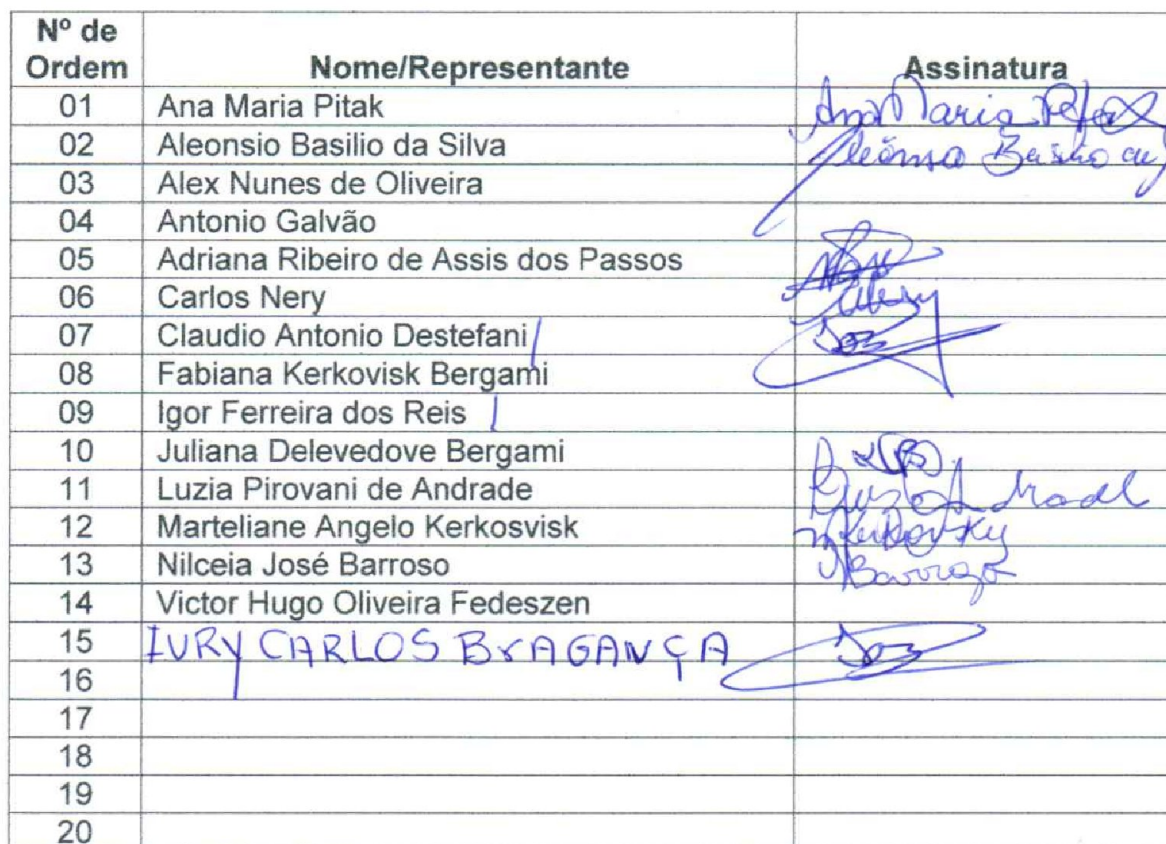 Nº de Ordem Nome/Representante Assinatura
01 Ana Maria Pitak Ana Maria Pitak
02 Aleonsio Basilio da Silva
03 Alex Nunes de Oliveira
04 Antonio Galvão
05 Adriana Ribeiro de Assis dos Passos
06 Carlos Nery
07 Claudio Antonio Destefani
08 Fabiana Kerkovisk Bergami
09 Igor Ferreira dos Reis
10 Juliana Delevedove Bergami
11 Luzia Pirovani de Andrade
12 Marteliane Angelo Kerkosvisk
13 Nilceia José Barroso
14 Victor Hugo Oliveira Fedeszen
15 IURY CARLOS BrAGANÇA
16
17
18
19
20